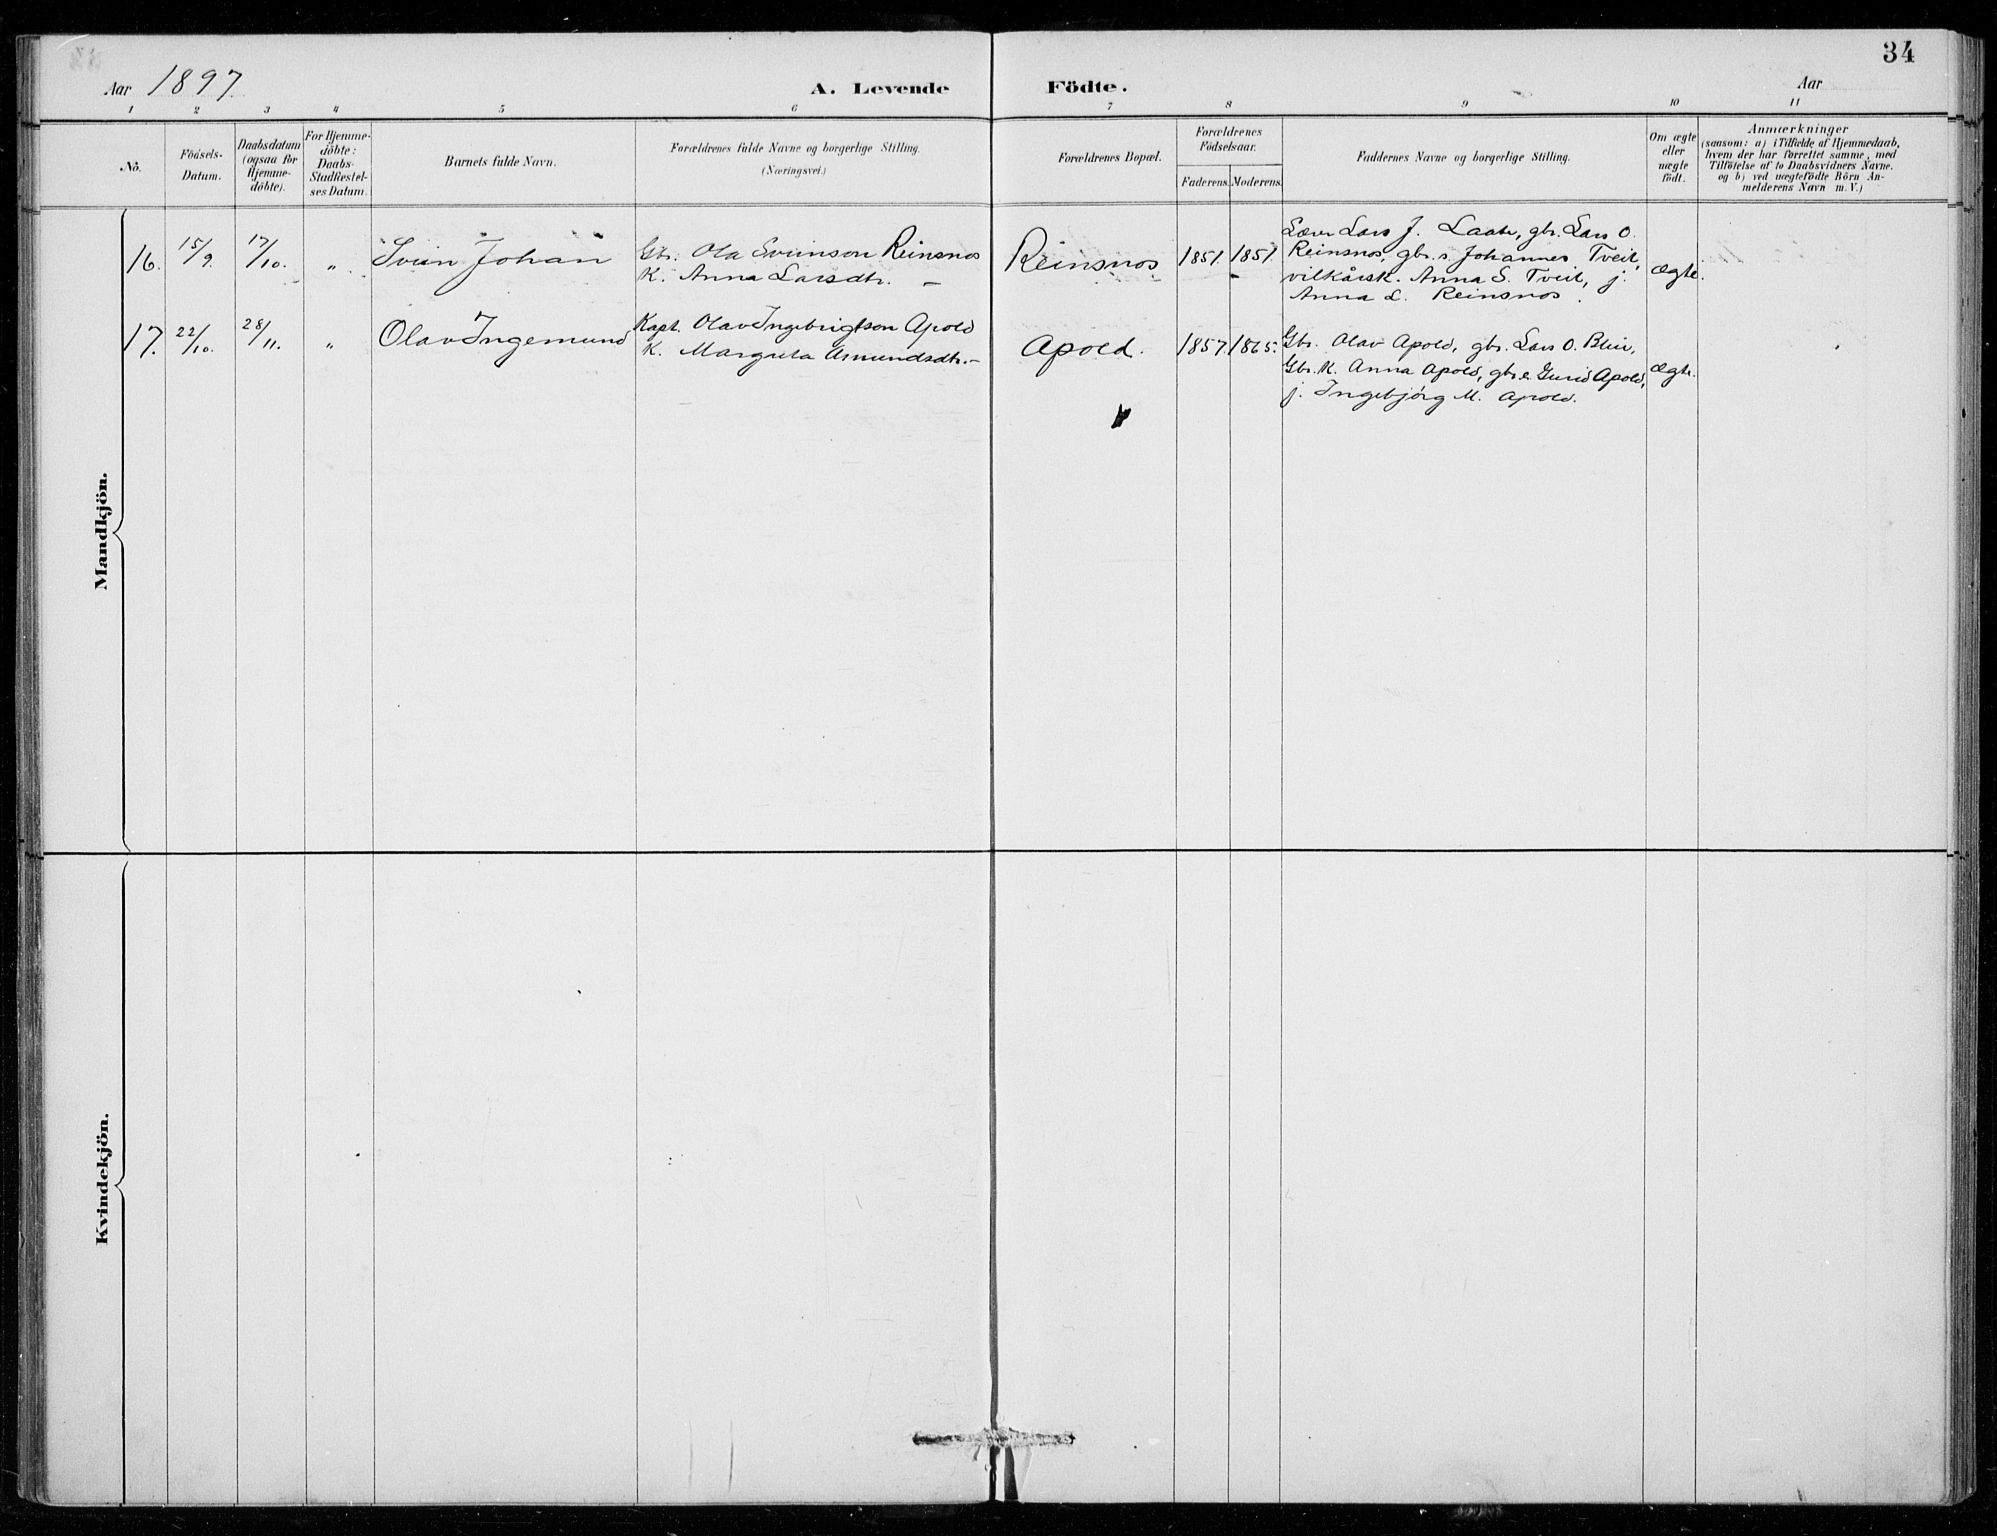 34
Aar 1897. A. Levende Födte. Aar
1 2 3 4 5 6 7 8 9 10 11
No.
Födsels-
Datum.
Daabsdatum
(ogsaa for
Hjemme-
döbte).
For Hjemme-
döbte:
Daabs-
Stadfæstel-
ses Datum.
Barnets fulde Navn.
Forældrenes fulde Navne og borgerlige Stilling.
(Næringsvei.)
Forældrenes Bopæl.
Forældrenes
Födselsaar.
Faderens. Moderens.
Faddernes Navne og borgerlige Stilling.
Om ægte
eller
uægte
födt.
Anmærkninger
(saasom: a) i Tilfælde af Hjemmedaab,
hvem der har forrettet samme, med
Tilföielse af to Daabsvidners Navne.
og b) ved uægtefödte Börn An-
melderens Navn m. V.)
Mandkjön.
16. 15/9. 17/10. " Svein Johan
Gbr. Ola Sveinson Reinsnos
K. Anna Larsdtr. —
Reinsnos 1851 1851
Lars J. Laate, gbr. Lars O.
Reinsnos, gbr. s. Johannes Tveit,
vilkårsk. Anna S. Tveit, j.
Anna L. Reinsnos.
Ægte.
17. 22/10. 28/11. " Olav Ingemund
Kapt. Olav Ingebrigtson Apold
K. Margreta Amundsdtr. —
Apold. 1857. 1865.
Gbr. Olav Apold, gbr. Lars O. Bleie,
Gbr. K. Anna Apold, gbr. e. Gurid Apold,
j. Ingebjörg M. Apold.
Ægte.
Kvindekjön.